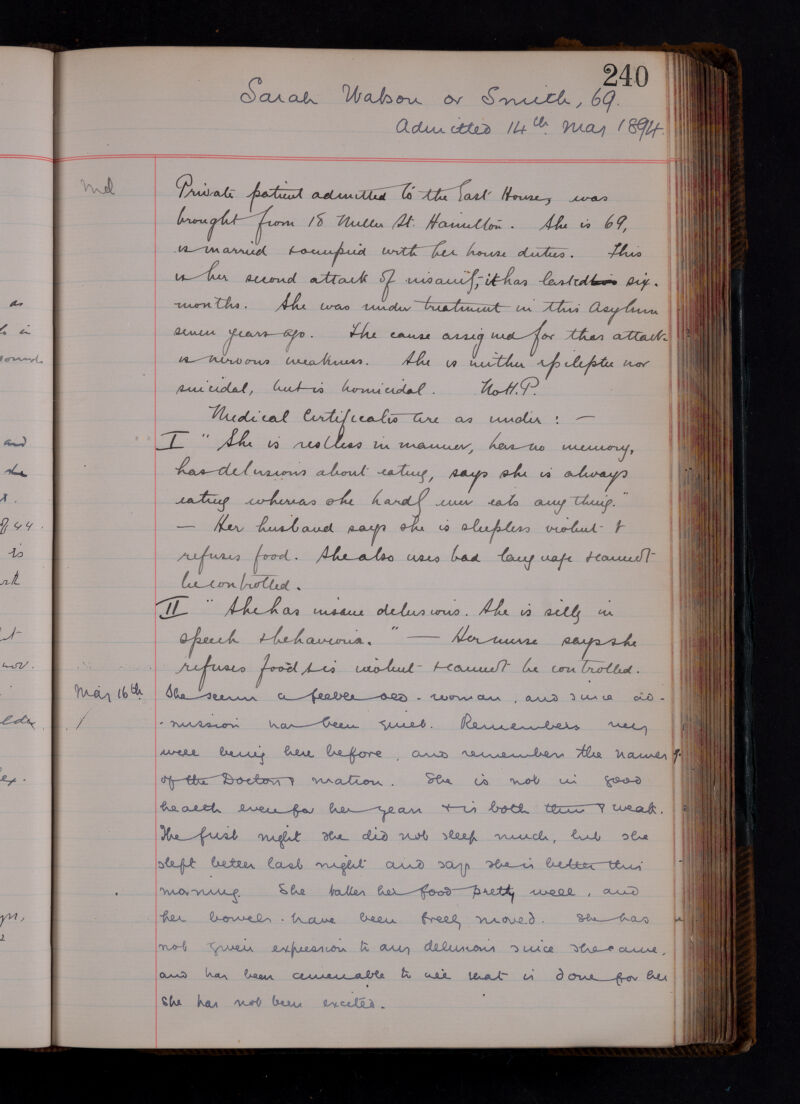 240
Sarah Watson or Smith, 69.
Admitted 14th May 1894.
Md
Private patient admitted to the East House, was
brought from 18 Miller St. Hamilton. She is 69,
is married & occupied with her house duties. This
is her second attack of insanity, it has lasted six
months. She was under treatment in this Asylum
seven years ago. The cause assigned for this attack
is nervous weakness. She is neither epileptic nor
suicidal, but is homicidal. No H.P.
Medical Certificates are as under : —
I " She is restless in manner, has no memory,
has delusions about eating, says she is always
eating whereas she hardly ever eats any thing."
— Her husband says she is sleepless violent &
refuses food. She also uses bad language & cannot
be controlled.
II " She has insane delusions. She is silly in
speech & behaviour. " — Her nurse says she
refuses food & is violent & cannot be controlled.
May 16th
She seems a feeble old woman, and since ad-
-mission has been quiet. Remembers very
well being here before, and remembers the names of
of the Doctors & matron. She is not in good
health even for her years & is both thin & weak.
The first night she did not sleep much, but she
slept better last night and says she is better this
morning. She takes her food pretty well, and
her bowels have been freely moved. She has
not given expression to any delusions since she came,
and has been amenable to all that is done for her
She has not been excited.
as
and
she
of 44.
is